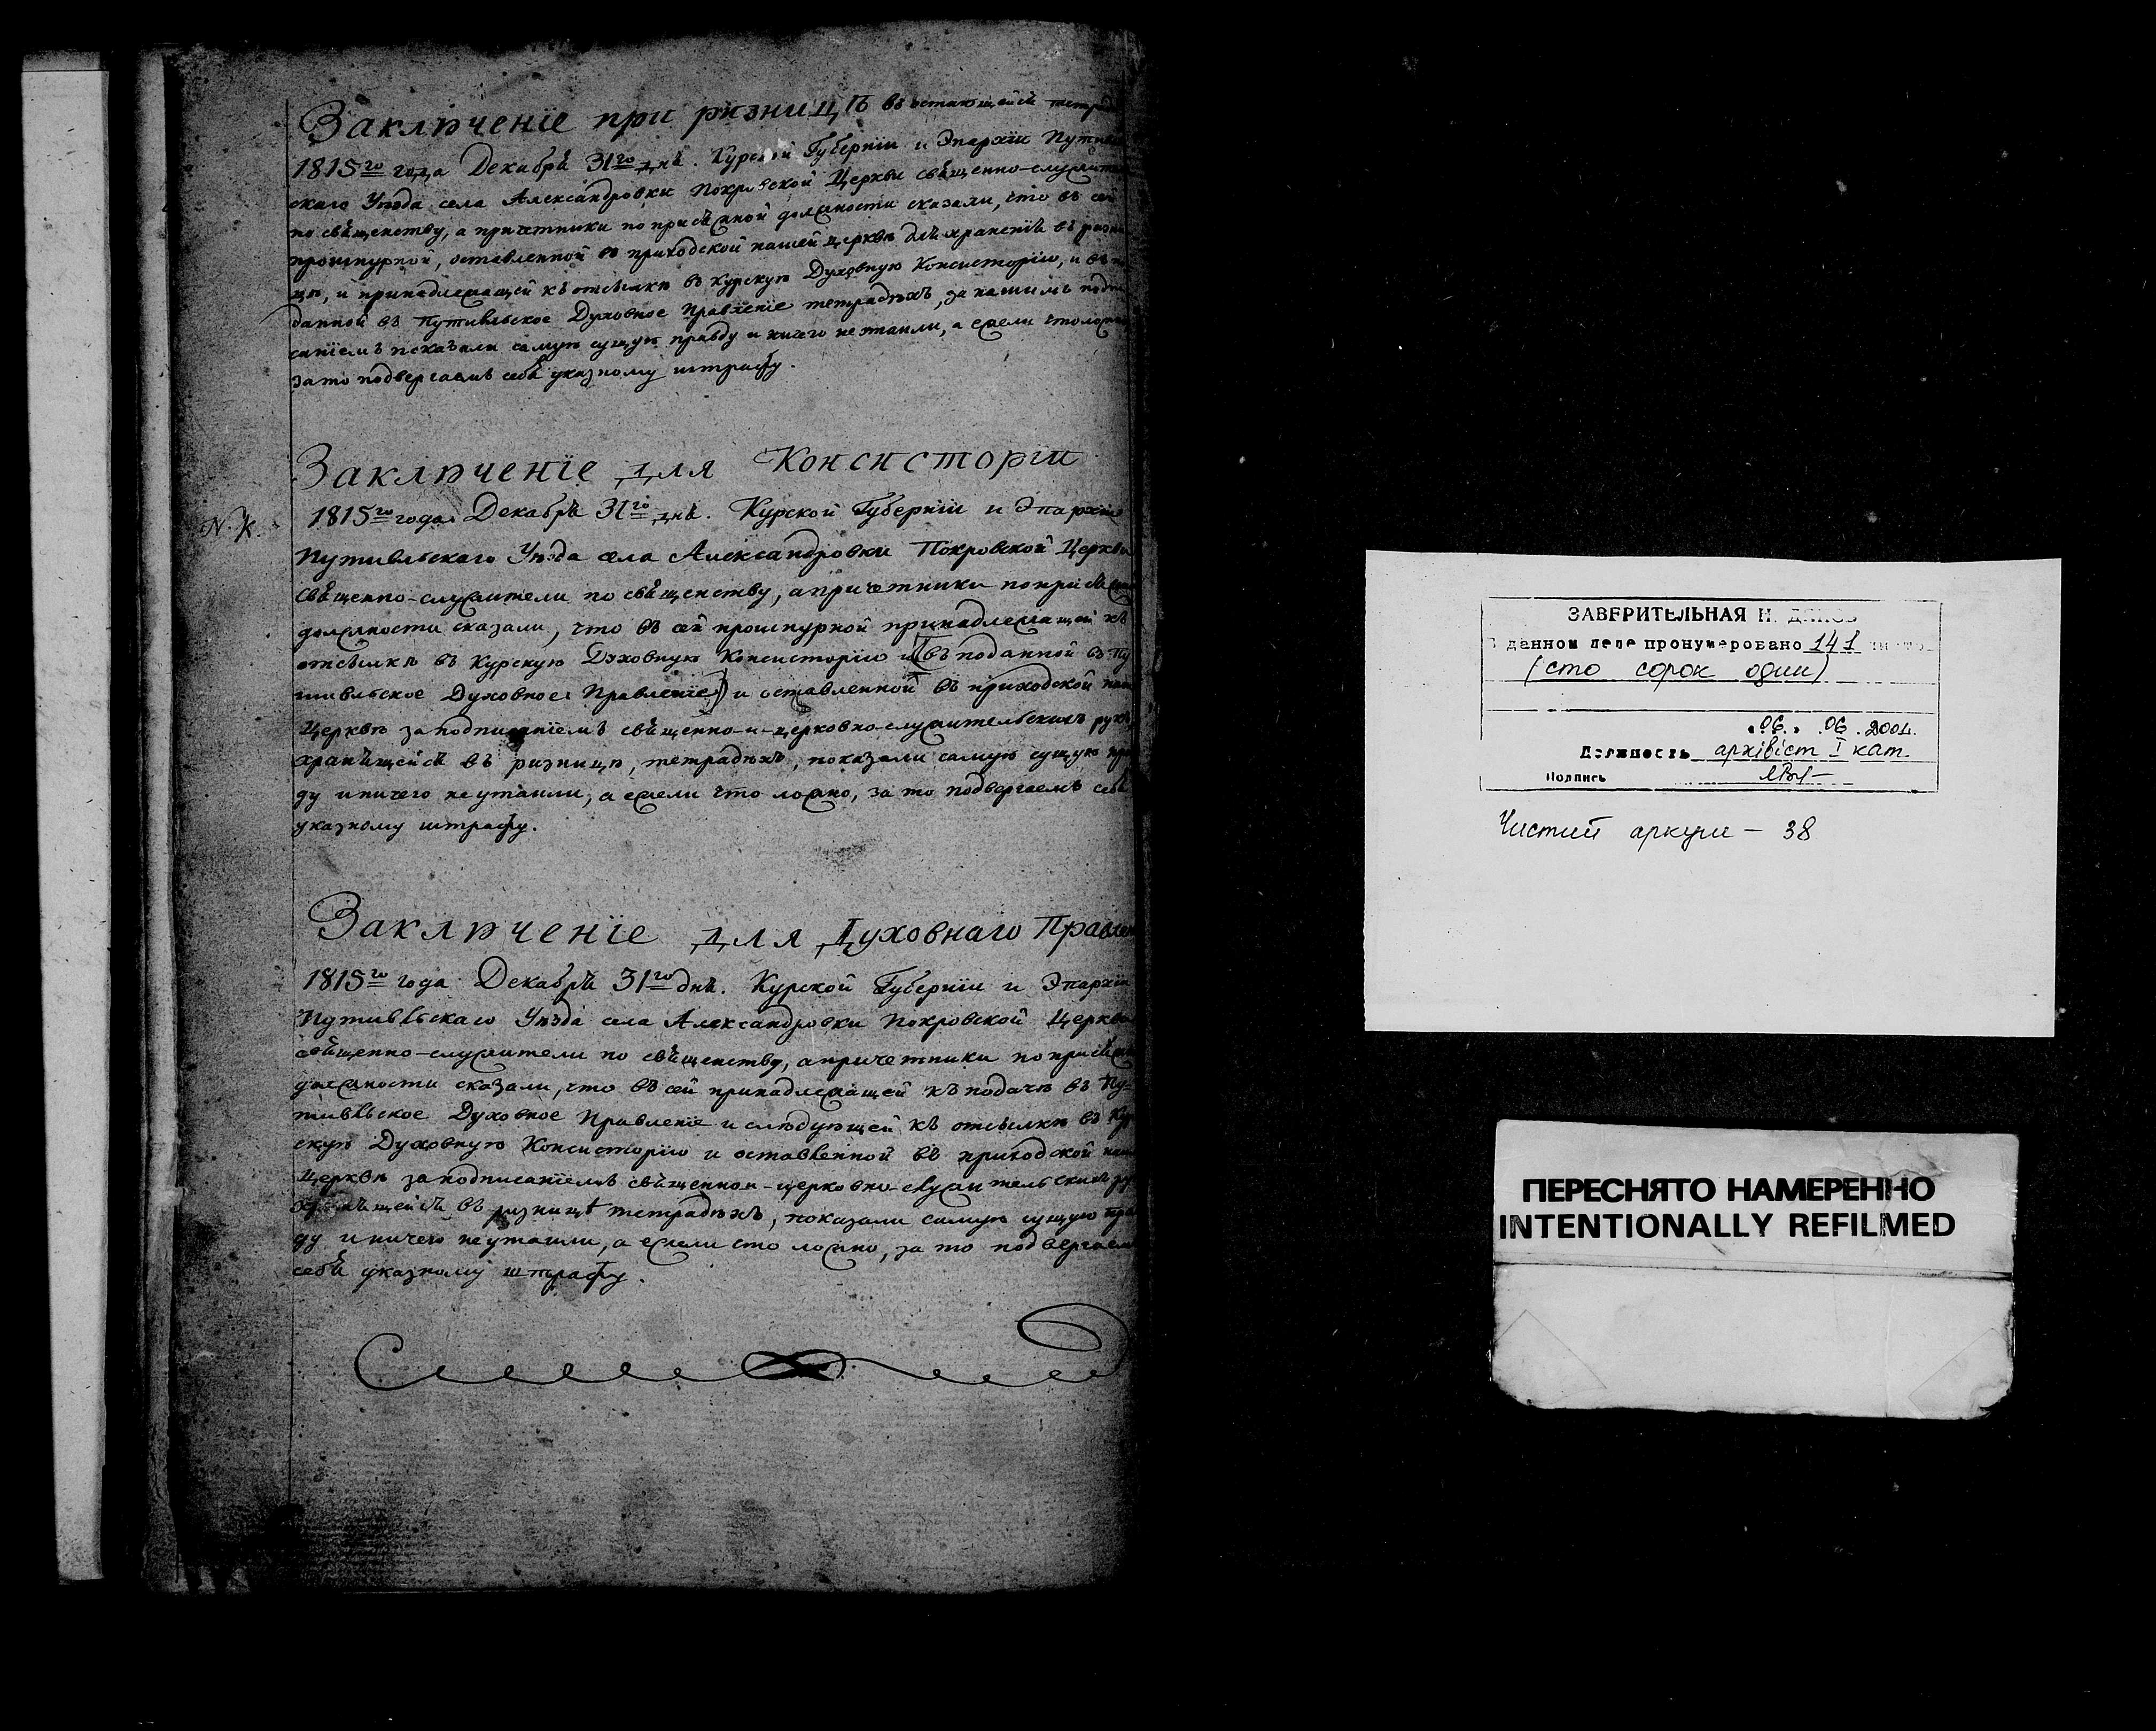 Заключенїе при ризницѣ въ остающейся
1815го года Декабря 31го дня. Курской Губернїи и Эпархїи
скаго Уѣзда села Александровки Покровской Церкви священно-
по священству, а причетники по присяжной должности сказали, что въ сей
прошнурной, оставленной въ приходской нашей церквѣ для храненїя въ
цѣ, и принадлежащей къ отсылкѣ въ Курскую Духовную Консисторїю, и
данной въ Путивльское Духовное Правленїе тетрадѣхъ, за нашимъ
санїемъ показали самую сущую правду и ничего не утаили, а ежели что
за то подвергаемъ себя указному штрафу.
Заключенїе для Консисторїи
N. К.
1815го года Декабря 31го дня. Курской Губернїи и Эпархїи
Путивльскаго Уѣзда села Александровки Покровской Церкви
священно-служители по священству, а причетники по
должности сказали, что въ сей прошнурной принадлежащей къ
отсылкѣ въ Курскую Духовную Консисторїю и (въ поданной въ Пу
тивльское Духовное Правленїе) и оставленной въ приходской
Церквѣ за подписанїемъ священно-и-церковно-служительскихъ рукъ
хранящейся въ ризницѣ, тетрадѣхъ, показали самую сущую
ду и ничего не утаили, а ежели что ложно, за то подвергаемъ себя
указному штрафу.
Заключенїе для Духовнаго
1815го года Декабря 31го дня. Курской Губернїи и Эпархїи
Путивльскаго Уѣзда села Александровки Покровской Церкви
священно-служители по священству, а причетники по
должности сказали, что въ сей принадлежащей къ подачѣ въ Пу-
тивльское Духовное Правленїе и слѣдующей къ отсылкѣ въ Кур
скую Духовную Консисторїю и оставленной въ приходской
Церквѣ за подписанїемъ священнои-церковно-служительскихъ
хранящейся въ ризницѣ тетрадѣхъ, показали самую сущую
ду и ничего не утаили, а ежели что ложно, за то подвергаемъ
себя указному штрафу.
ЗАВЕРИТЕЛЬНАЯ
данном деле пронумеровано 141
(сто сорок один)
"06" 06. 2001.
Должность архівіст I кат.
Подпись
Чистий аркуш – 38
ПЕРЕСНЯТО НАМЕРЕННО
INTENTIONALLY REFILMED